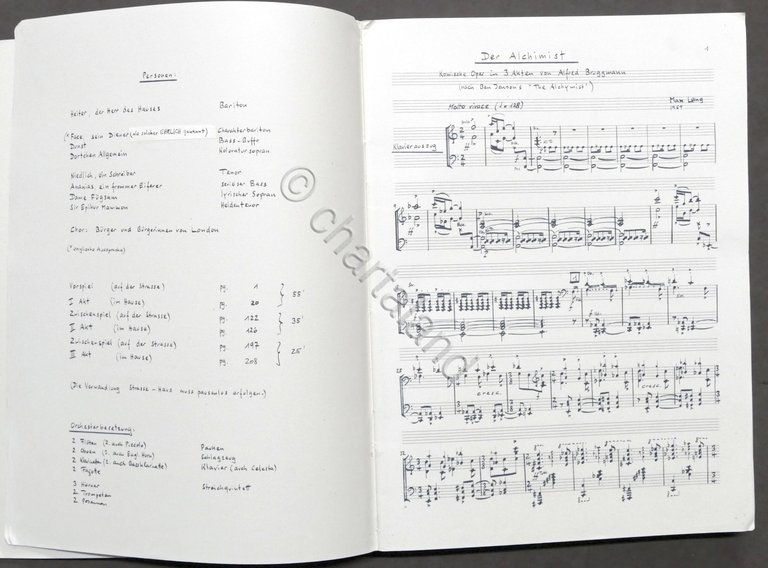 Personen:
Heiter, der Herr des Hauses Bariton
(* Face, sein Diener (als solcher EHRLICH genannt) Charakterbariton
Dunst Bass-Buffo
Dortchen Allgemein Koloratursopran
Niedlich, ein Schreiber Tenor
Ananias, ein frommer Eiferer seriöser Bass
Dame Fügsam lyrischer Sopran
Sir Epikur Mammon Heldentenor
Chor: Bürger und Bürgerinnen von London
(* englische Aussprache)
Vorspiel (auf der Strasse) pg. 1
I Akt (im Hause) pg. 20
55'
Zwischenspiel (auf der Strasse) pg. 122
II Akt (im Hause) pg. 126
35'
Zwischenspiel (auf der Strasse) pg. 197
III Akt (im Hause) pg. 208
25'
(Die Verwandlung Strasse - Haus muss pausenlos erfolgen.)
Orchesterbesetzung:
2 Flöten (2. auch Piccolo) Pauken
2 Oboen (2. auch Engl. Horn) Schlagzeug
2 Klarinetten (2. auch Bassklarinette) Klavier (auch Celesta)
2 Fagotte
3 Hörner Streichquintett
2 Trompeten
2 Posaunen
1
Der Alchimist
Komische Oper in 3 Akten von Alfred Bruggmann
(nach Ben Jonson's "The Alchymist")
Molto vivace (♩= 128)
Max Lang
Klavierauszug
1
cresc. cresc.
© chartaland